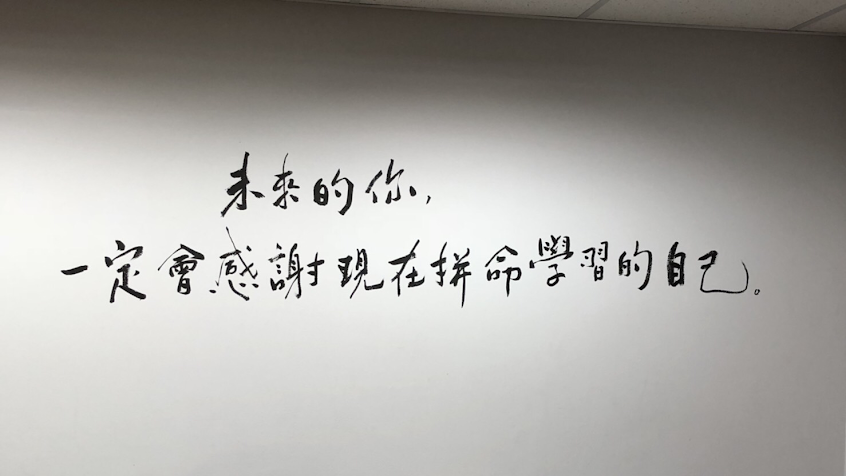 未來的你，
一定會感謝現在拼命學習的自己。